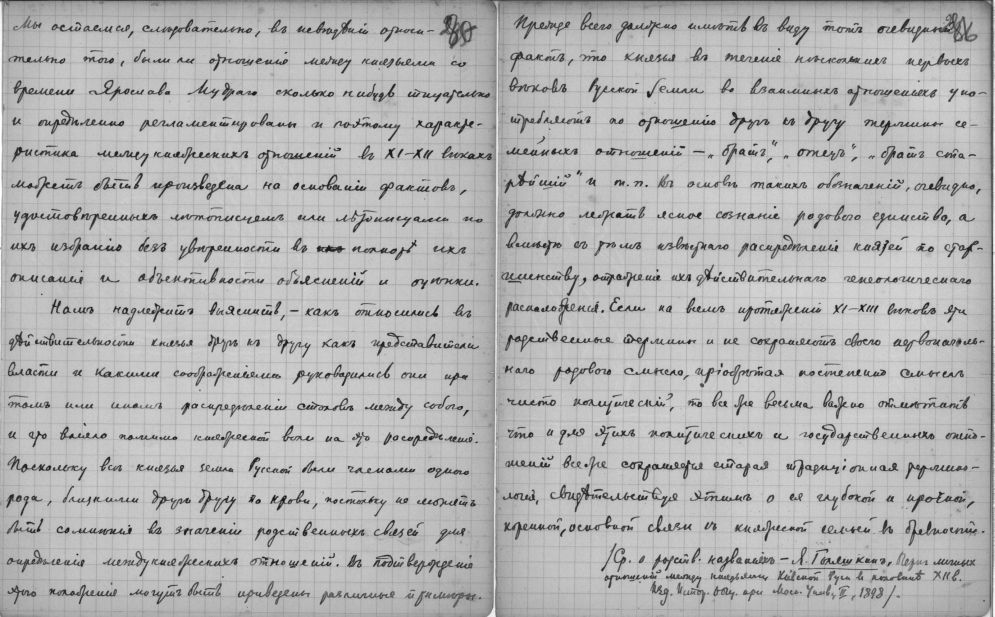 Мы остаемся, слѣдовательно, въ невѣдѣнiи относи-
тельно того, были ли отношенiя между князьями со
времени Ярослава Мудраго сколько нибудь тщательно
и опредѣленно регламентированы и поэтому характе-
ристика междукняжескихъ отношенiй въ XI-XII вѣкахъ
можетъ быть произведена на основанiи фактовъ,
удостовѣренныхъ лѣтописцемъ или лѣтописцами по
ихъ избранiю безъ увѣренности въ полнотѣ ихъ
описанiя и объективности объясненiй и оцѣнки.
Намъ надлежитъ выяснить, – какъ относились въ
дѣйствительности князья другъ къ другу какъ представители
власти и какими соображенiями руководились они при
томъ или иномъ распредѣленiи столовъ между собою,
и что влiяло помимо княжеской воли на это распредѣленiе.
Поскольку всѣ князья земли Русской были членами одного
рода, близкими другъ другу по крови, постольку не можетъ
быть сомнѣнiя въ значенiи родственныхъ связей для
опредѣленiя междукняжескихъ отношенiй. Въ подтвержденiе
этого положенiя могутъ быть приведены различные примѣры.
86
Прежде всего должно имѣть въ виду тотъ очевидный
фактъ, что князья въ теченiе нѣсколькихъ первыхъ
вѣковъ Русской Земли во взаимныхъ отношенiяхъ упо-
требляютъ по отношенiю другъ къ другу термины се-
мейныхъ отношенiй – „братъ“, „отецъ“, „братъ ста-
рѣйшiй“ и т.п. Въ основѣ такихъ обозначенiй, очевидно,
должно лежать ясное сознанiе родового единства, а
вмѣстѣ съ тѣмъ извѣстнаго распредѣленiя князей по стар-
шинству, отраженiе ихъ дѣйствительнаго генеологическаго
расположенiя. Если на всемъ протяженiи XI-XIII вѣковъ эти
родственные термины и не сохраняютъ своего первоначаль-
наго родового смысла, прiобрѣтая постепенно смыслъ
чисто политическiй, то все же весьма важно отмѣтить
что и для этихъ политическихъ и государственныхъ отно-
шенiй все же сохраняется старая традицiонная термино-
логiя, свидѣтельствуя этимъ о ея глубокой и прочной,
коренной, основной связи съ княжеской семьей въ древности.
/Ср. о родств. названiяхъ – Я. Голяшкинъ, Очеркъ личныхъ
отношенiй между князьями Кiевской Руси въ половинѣ XII в.
Изд. Истор. Общ. при Моск. Унив., II, 1898/.